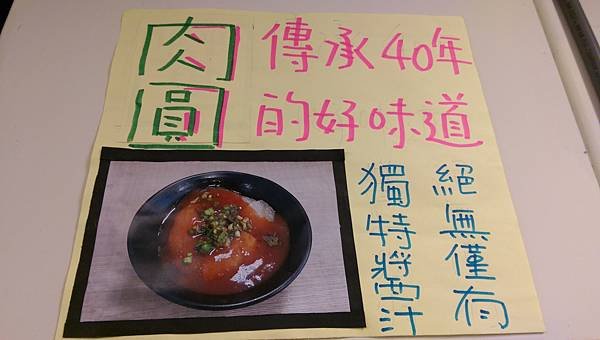 肉圓
傳承40年
的好味道
絕無僅有
獨特醬汁